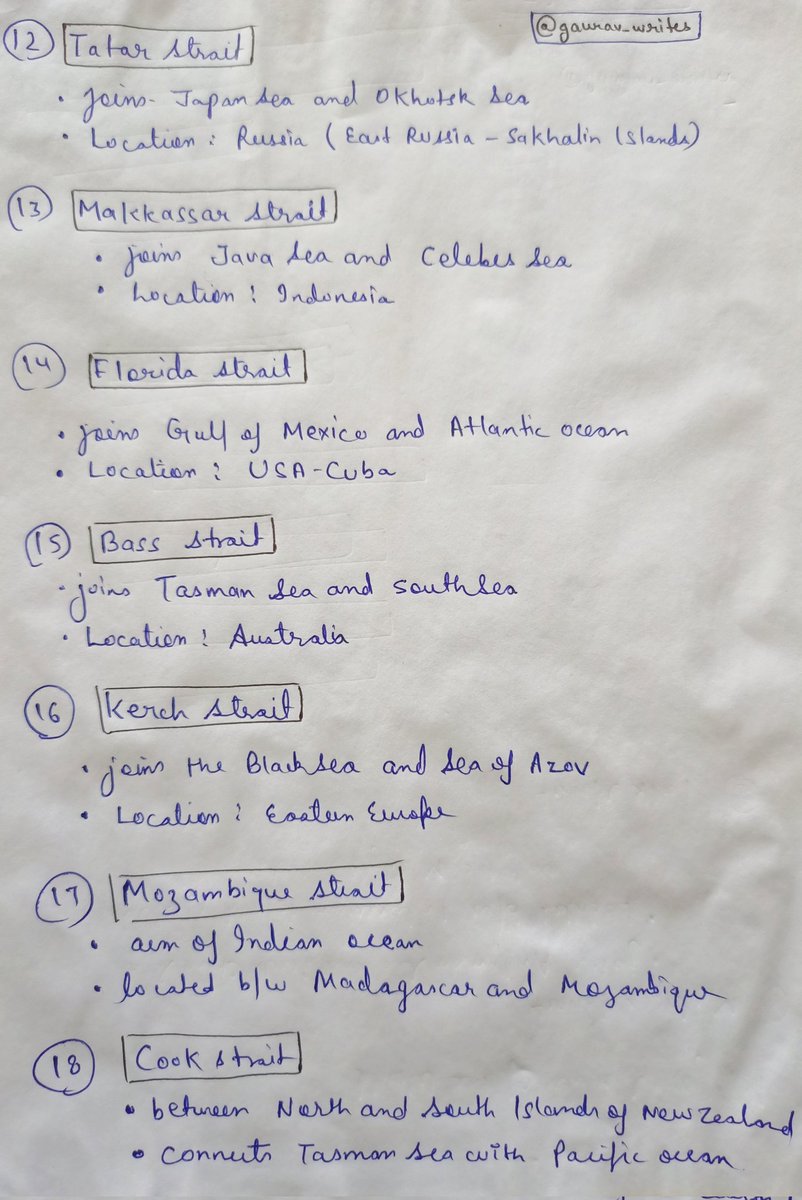 @gaurav_writes
12 Tatar Strait
• joins- Japan Sea and Okhotsk Sea
• Location : Russia ( East Russia - Sakhalin Islands)
13 Makkassar Strait
• joins Java Sea and Celebes Sea
• Location : Indonesia
14 Florida Strait
• joins Gulf of Mexico and Atlantic ocean
• Location : USA-Cuba
15 Bass Strait
• joins Tasman Sea and South Sea
• Location : Australia
16 Kerch Strait
• joins the Black sea and Sea of Azov
• Location : Eastern Europe
17 Mozambique Strait
• arm of Indian ocean
• located b/w Madagascar and Mozambique
18 Cook Strait
• between North and South Islands of New Zealand
• connects Tasman Sea with Pacific ocean